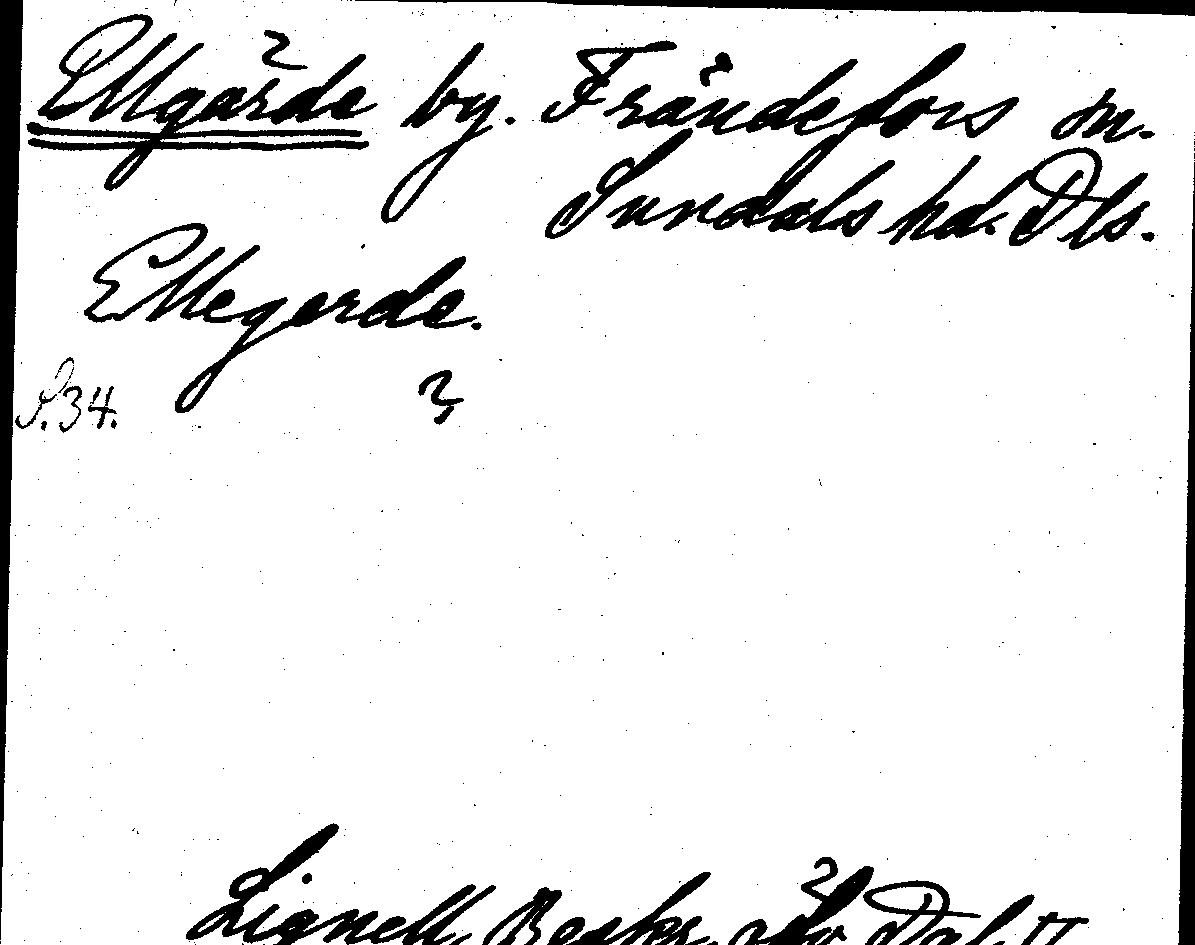 Ellgärde by. Frändefors sn.
Sundals hd. Dls.
Ellegerde.
S. 34.
Lignell, Beskr. öfv. Dal. II